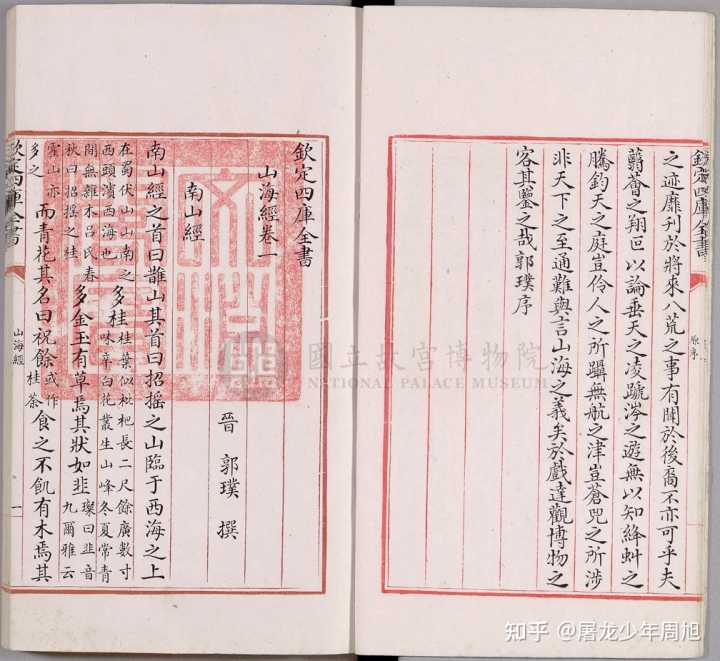 欽定四庫全書
原序
之迹靡刋於將來八荒之事有聞於後裔不亦可乎夫
蘙薈之翔叵以論垂天之凌蹏涔之遊無以知絳虯之
騰鈞天之庭豈伶人之所躡無航之津豈蒼兕之所涉
非天下之至通難與言山海之義矣於戲達觀博物之
客其鑒之哉郭璞序
欽定四庫全書
山海經卷一
晉 郭璞 撰
南山經
南山經之首曰䧿山其首曰招摇之山臨于西海之上
在蜀伏山山南之西頭濱西海也多桂桂葉似枇杷長二尺餘廣數寸味辛白花叢生山峰冬夏常青
間無雜木吕氏春秋曰招摇之桂多金玉有草焉其狀如韭璨曰韭音九爾雅云
霍山亦多之而青花其名曰祝餘或作桂荼食之不飢有木焉其
欽定四庫全書
山海經
一
國立故宮博物院
NATIONAL PALACE MUSEUM
知乎 @屠龙少年周旭